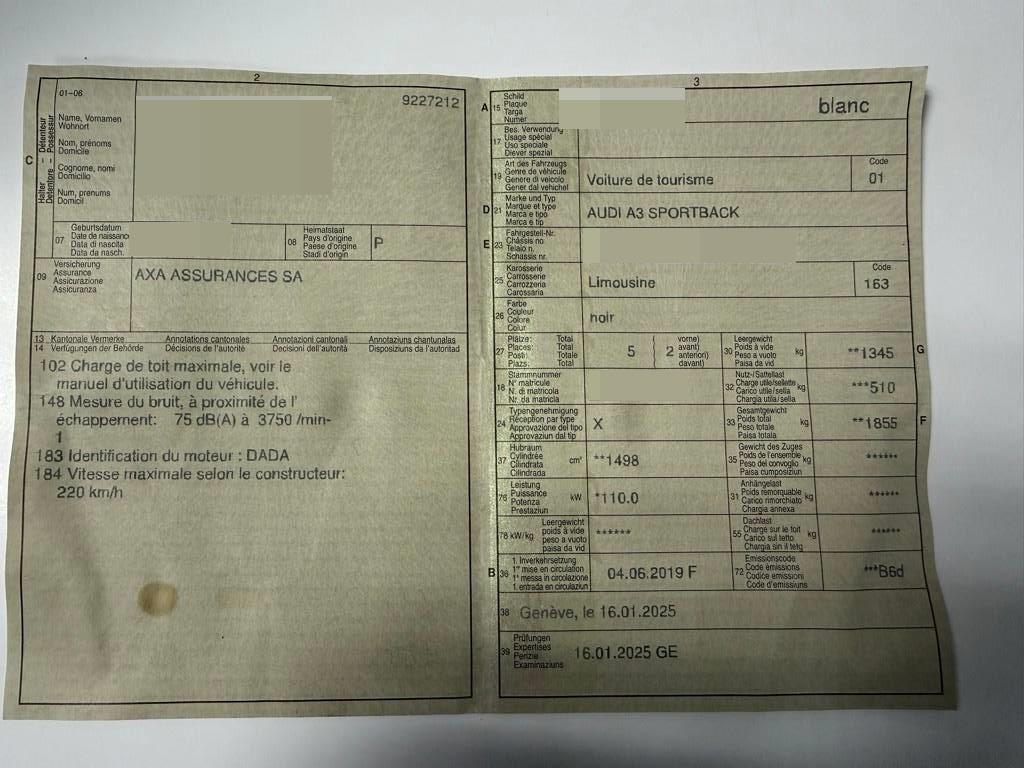 2
01-06
9227212
C
Halter – Détenteur
Detentore – Possessur
Name, Vornamen
Wohnort
Nom, prénoms
Domicile
Cognome, nomi
Domicilio
Num, prenums
Domicil
07
Geburtsdatum
Date de naissance
Data di nascita
Data da nasch.
08
Heimatstaat
Pays d'origine
Paese d'origine
Stadi d'origin
P
09
Versicherung
Assurance
Assicurazione
Assicuranza
AXA ASSURANCES SA
13 Kantonale Vermerke Annotations cantonales Annotazioni cantonali Annotaziuns chantunalas
14 Verfügungen der Behörde Décisions de l'autorité Decisioni dell'autorità Disposiziuns da l'autoritad
102 Charge de toit maximale, voir le
manuel d'utilisation du véhicule.
148 Mesure du bruit, à proximité de l'
échappement: 75 dB(A) à 3750 /min-
1
183 Identification du moteur : DADA
184 Vitesse maximale selon le constructeur:
220 km/h
3
A 15
Schild
Plaque
Targa
Numer
blanc
17
Bes. Verwendung
Usage spécial
Uso speciale
Diever spezial
19
Art des Fahrzeugs
Genre de véhicule
Genere di veicolo
Gener dal vehichel
Voiture de tourisme
Code
01
D 21
Marke und Typ
Marque et type
Marca e tipo
Marca e tip
AUDI A3 SPORTBACK
E 23
Fahrgestell-Nr.
Châssis no
Telaio n.
Schassis nr.
25
Karosserie
Carrosserie
Carrozzeria
Carossaria
Limousine
Code
163
26
Farbe
Couleur
Colore
Colur
noir
27
Plätze: Total
Places: Total
Posti: Totale
Plazs: Total
5
2
vorne)
avant)
anteriori)
davant)
30
Leergewicht
Poids à vide
Peso a vuoto
Paisa da vid
kg
**1345
G
18
Stammnummer
N° matricule
N. di matricola
Nr. da matricla
32
Nutz-/Sattellast
Charge utile/sellette
Carico utile/sella
Chargia utila/sella
kg
***510
24
Typengenehmigung
Réception par type
Approvazione del tipo
Approvaziun dal tip
X
33
Gesamtgewicht
Poids total
Peso totale
Paisa totala
kg
**1855
F
37
Hubraum
Cylindrée
Cilindrata
Cilindrada
cm³
**1498
35
Gewicht des Zuges
Poids de l'ensemble
Peso del convoglio
Paisa cumposiziun
kg
******
76
Leistung
Puissance
Potenza
Prestaziun
kW
*110.0
31
Anhängelast
Poids remorquable
Carico rimorchiato
Chargia annexa
kg
******
78 kW/kg
Leergewicht
poids à vide
peso a vuoto
paisa da vid
******
55
Dachlast
Charge sur le toit
Carico sul tetto
Chargia sin il tetg
kg
******
B 36
1. Inverkehrsetzung
1re mise en circulation
1a messa in circolazione
1. entrada en circulaziun
04.06.2019 F
72
Emissionscode
Code émissions
Codice emissioni
Code d'emissiuns
***B6d
38 Genève, le 16.01.2025
39
Prüfungen
Expertises
Perizie
Examinaziuns
16.01.2025 GE